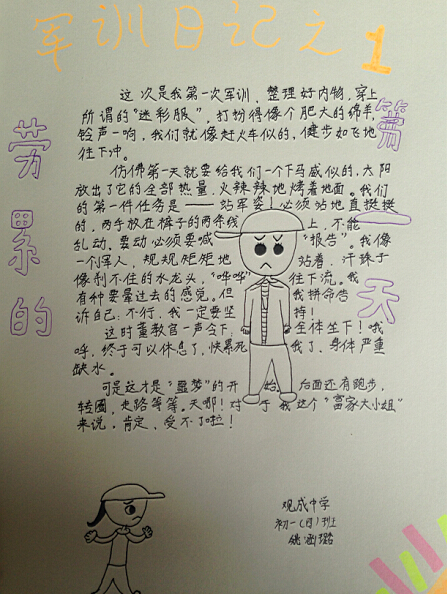 军训日记之1
劳累的
第一天
这次是我第一次军训,整理好内物,穿上
所谓的“迷彩服”,打扮得像个肥大的绵羊,
铃声一响,我们就像赶火车似的,健步如飞地
往下冲。
仿佛第一天就要给我们一个下马威似的,太阳
放出了它的全部热量,火辣辣地烤着地面。我们
的第一件任务是——站军姿!必须站地直挺挺
的,两手放在裤子的两条线上,不能
乱动,要动必须要喊“报告”。我像
一个军人,规规矩矩地站着,汗珠子
像刹不住的水龙头,“哗哗”往下流。我
有种要靠过去的感觉。但我拼命告
诉自己:不行,我一定要坚持!
这时董教官一声令下:全体坐下!我
呼,终于可以休息了,快累死我了,身体严重
缺水。
可是这才是“噩梦”的开始,后面还有跑步,
转圈,走路等等。天哪!对于我这个“富家大小姐”
来说,肯定,受不了啦!
观成中学
初一(四)班
姚